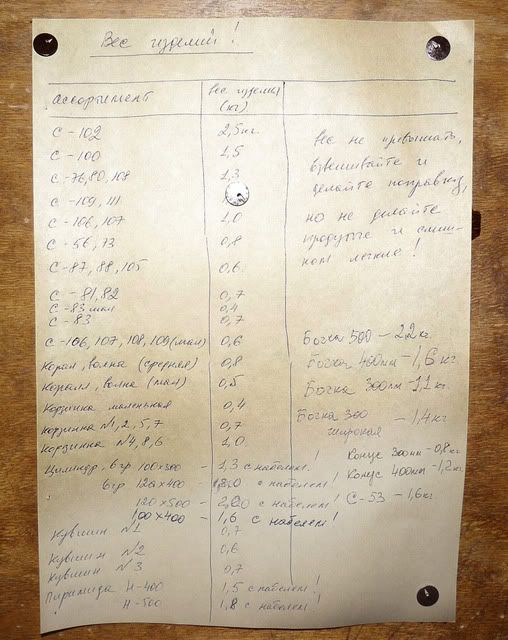 Вес изделий!
Ассортимент
вес изделия
(кг)
С-102 2,5кг.
С-100 1,5
С-76,80,108 1,3
С-109,111
С-106,107 1,0
С-56,73 0,8
С-87,88,105 0,6
С-81,82 0,7
С-83 мал 0,4
С-83 0,7
С-106,107,108,109(мал) 0,6
Коралл, волна (средняя) 0,8
Коралл, волна (мал) 0,5
Корзинка маленькая 0,4
Корзинка №1,2,5,7 0,7
Корзинка №4,8,6 1,0
Цилиндр, 6гр 100×300 - 1,3 с кабелем!
6гр 120×400 - с кабелем!
120×500 - с кабелем!
100×400 - 1,6 с кабелем!
Кувшин №1 0,7
Кувшин №2 0,6
Кувшин №3 0,7
Пирамида Н-400 1,5 с кабелем!
Н-500 1,8 с кабелем!
вес не превышать,
взвешивайте и
делайте поправку,
но не делайте
продутые и слиш-
ком легкие!
Бочка 500 - 2,2кг.
Бочка 400мм - 1,6кг.
Бочка 300мм - 1,1кг.
Бочка 300 - 1,4кг
широкая
Конус 300мм - 0,8кг
Конус 400мм - 1,2кг.
С-53 - 1,6кг.